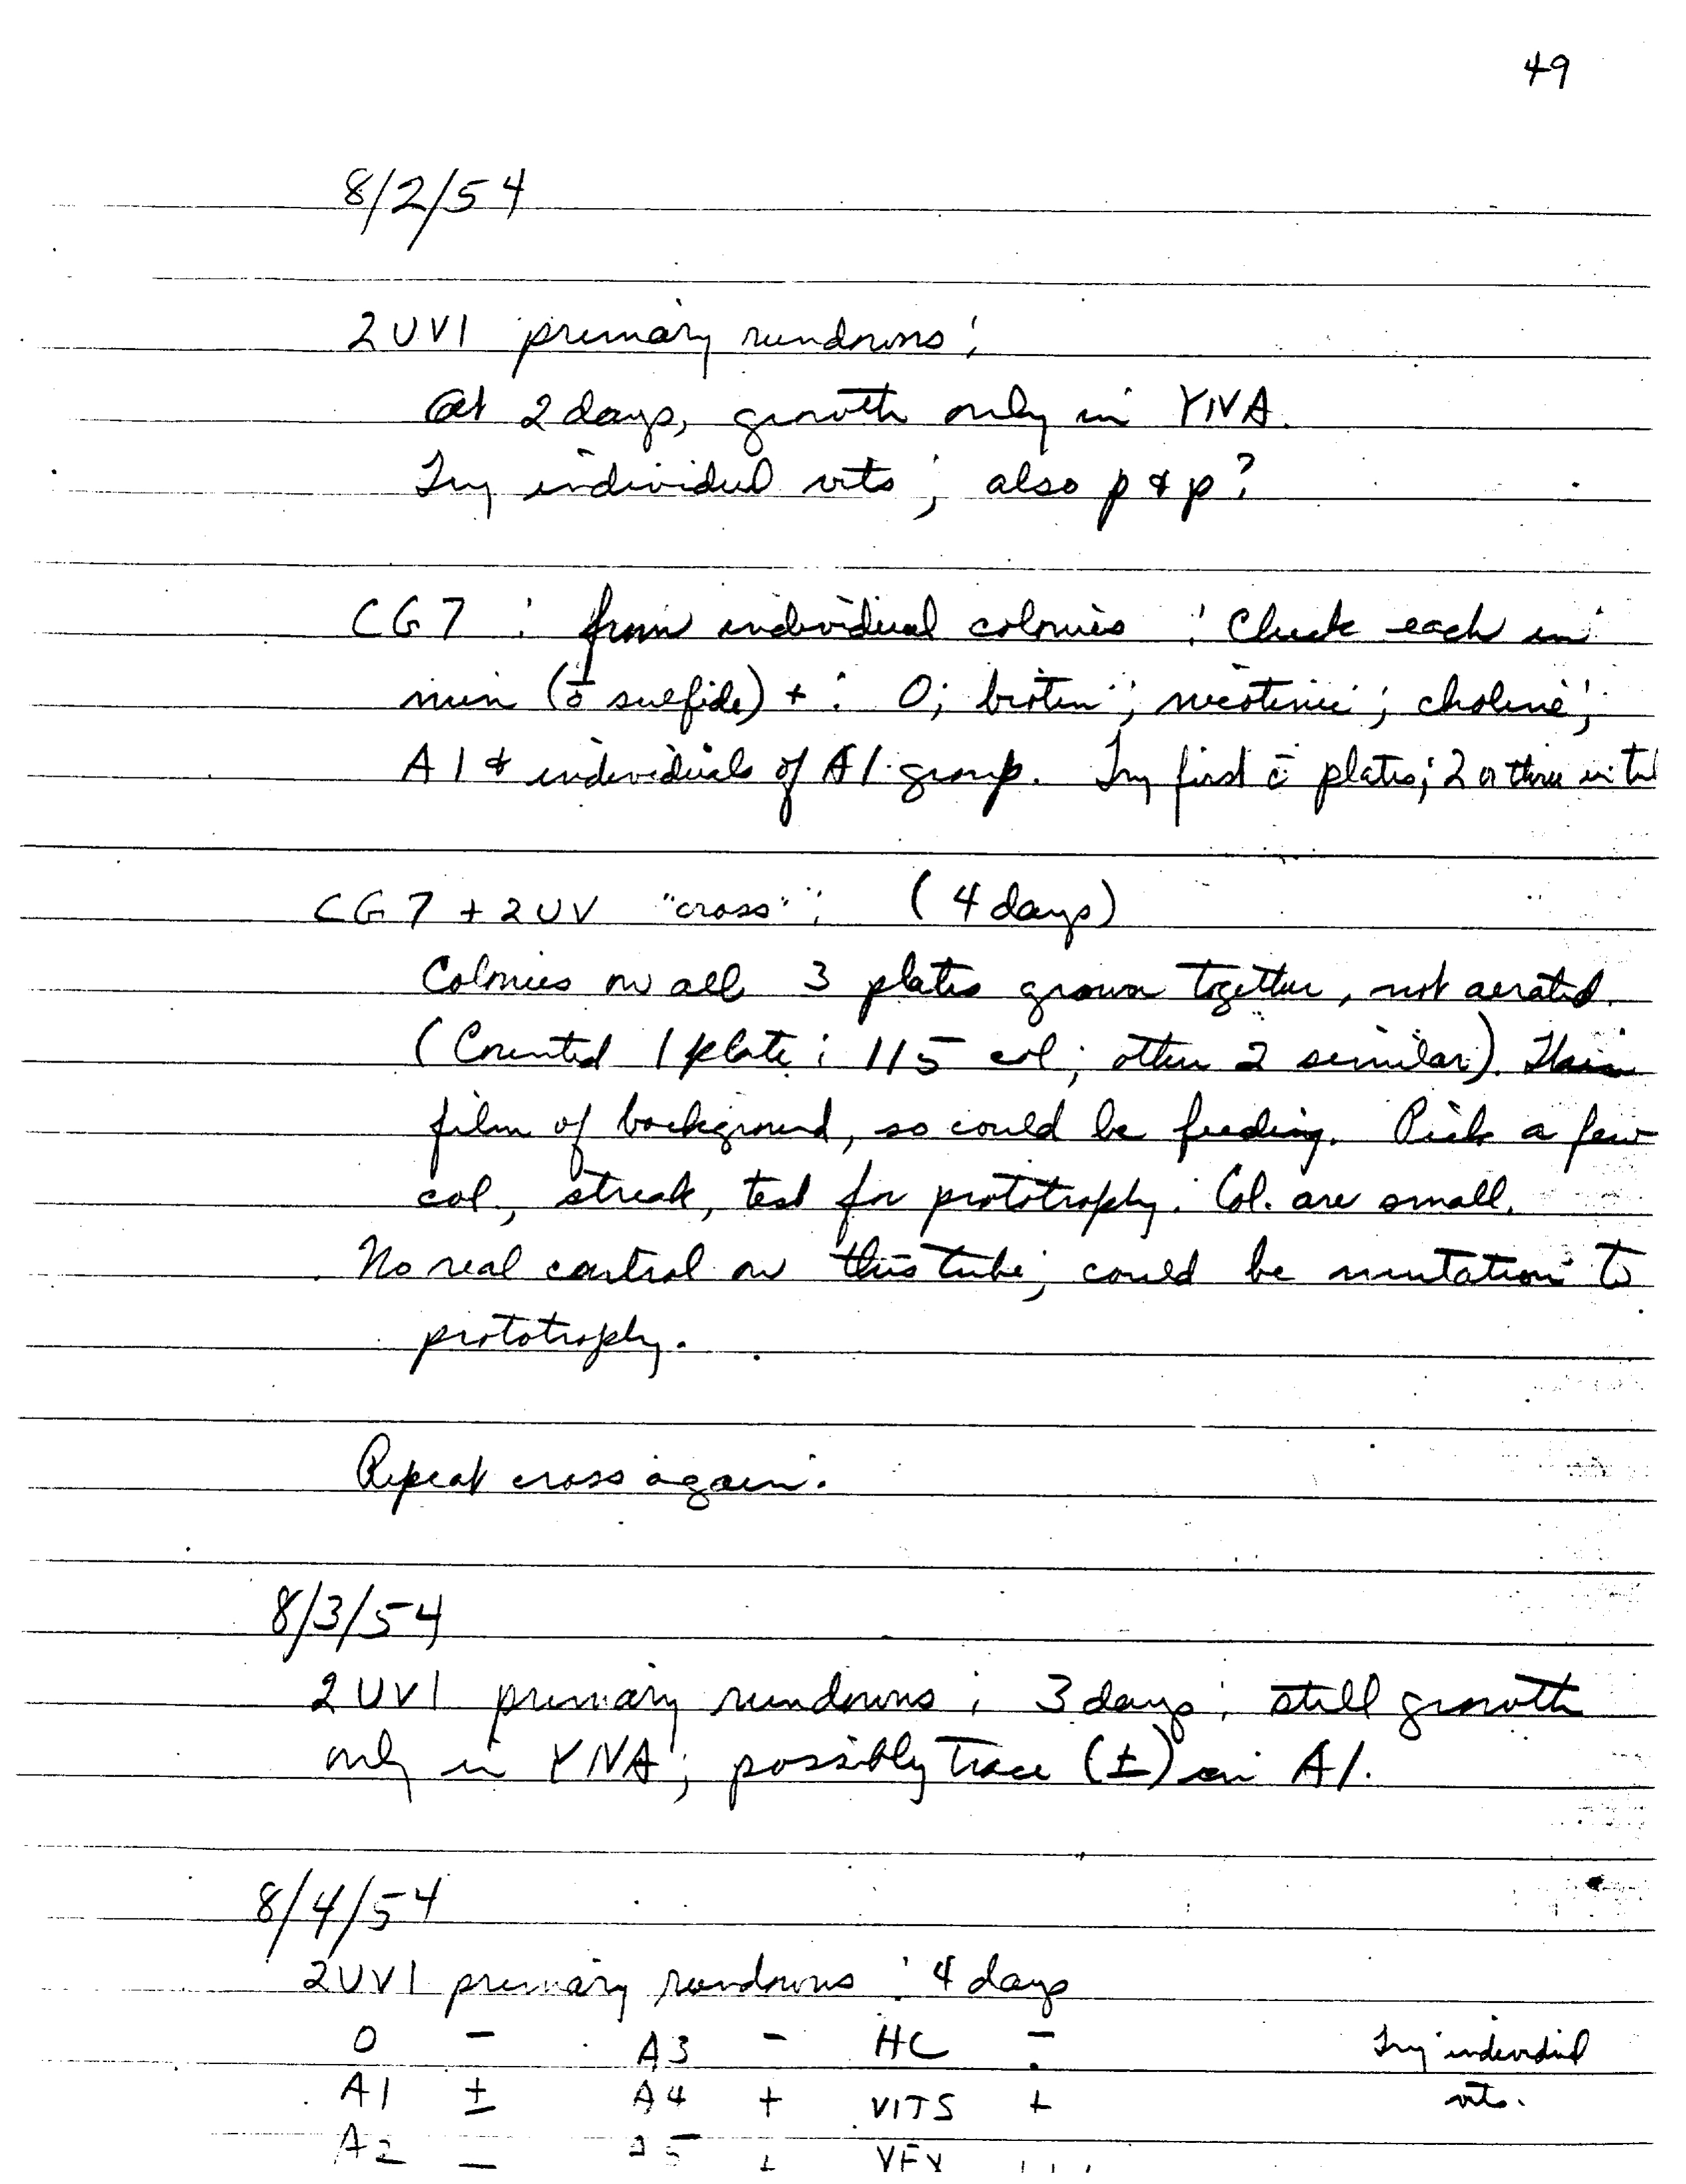 49
8/2/54
2UV1 primary rundowns:
At 2 days, growth only in YNA.
Try individual vits; also p & p?
CG7: from individual colonies: Check each in
min (c̄ sulfide) +: O; biotin; nicotinic; choline;
A1 & individuals of A1 group. Try first c̄ plates; 2 or three in
CG7 + 2UV "cross": (4 days)
Colonies on all 3 plates grown together, not aerated.
(Counted 1 plate: 115 col; other 2 similar). Thin
film of background, so could be feeding. Pick a few
col., streak, test for prototrophy. Col. are small.
No real control on this tube; could be mutation to
prototrophy.
Repeat cross again.
8/3/54
2UV1 primary rundowns: 3 days: still growth
only in YNA; possibly trace (±) in A1.
8/4/54
2UV1 primary rundowns: 4 days
O – A3 – HC – Try individual
A1 ± A4 + VITS + vits.
A2 – A5